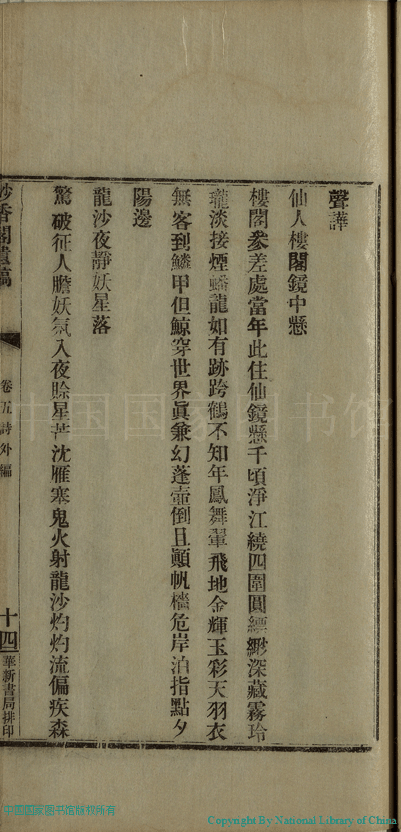 聲譁
仙人樓閣鏡中懸
樓閣參差處當年此住仙鏡懸千頃淨江繞四圍圓縹緲深藏霧玲
瓏淡接煙蟠龍如有跡跨鶴不知年鳳舞翬飛地金輝玉彩天羽衣
無客到鱗甲但鯨穿世界眞兼幻蓬壺倒且顚帆檣危岸泊指點夕
陽邊
龍沙夜靜妖星落
驚破征人膽妖氛入夜賒星芒沈雁塞鬼火射龍沙灼灼流偏疾森
妙香閣遺稿
卷五詩外編
十四
華新書局排印
中国国家图书馆
中国国家图书馆版权所有
Copyright By National Library of China